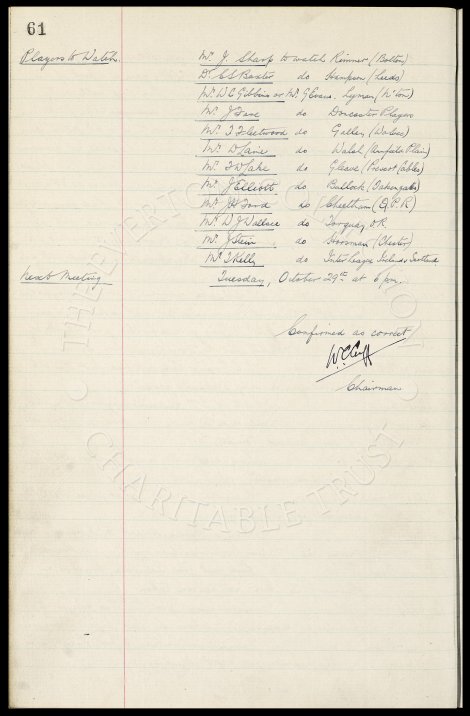 61
Players to Watch. Mr J. Sharp to watch Rimmer (Bolton)
Dr C S Baxter do Hampson (Leeds)
Mr W C Gibbins or Mr G Evans, Lyman (N'ton)
Mr J Fare do Doncaster Players
Mr T Fleetwood do (Wolves)
Mr do Walsh (Annfield Plain)
Mr do Gleave (Prescot Cables)
Mr J Elliott do Bullock
Mr H Ford do Cheetham (Q.P.R)
Mr W J Wallace do Torquay O.R.
Mr J Stein do Horsman (Chester)
Mr T Kelly do Inter League Ireland Scotland
Next Meeting Tuesday, October 29th at 6 pm.
Confirmed as correct
W.C. Cuff
Chairman
THE EVERTON
CHARITABLE TRUST